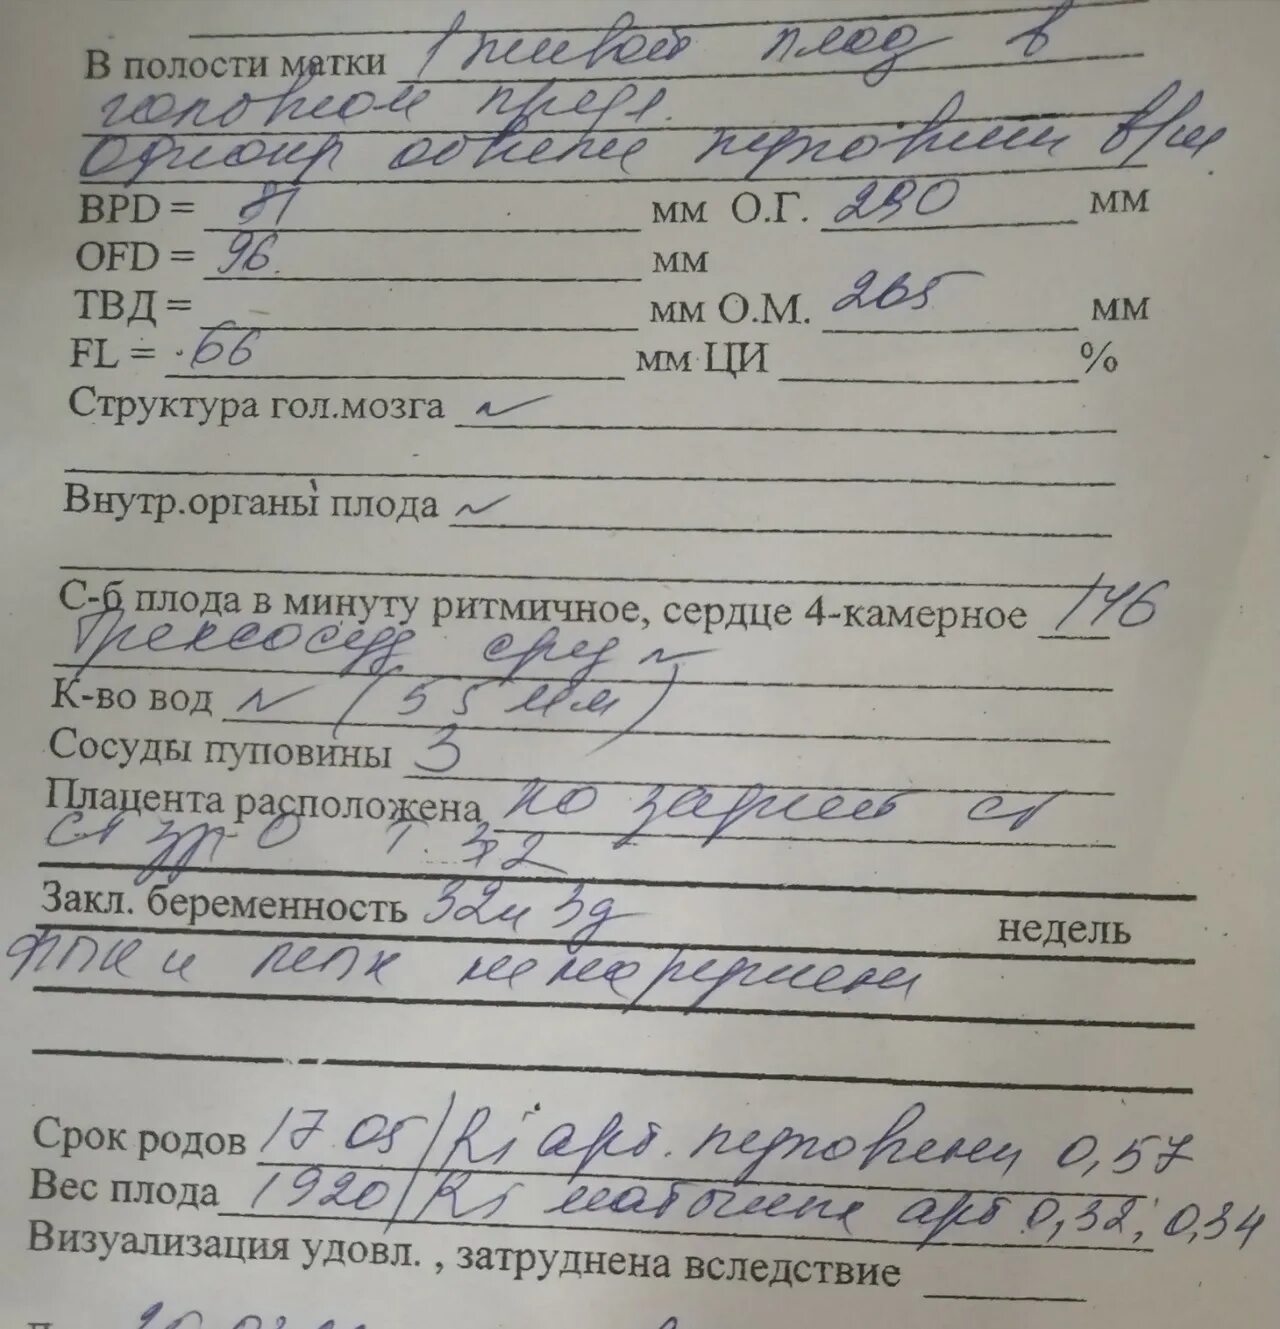 В полости матки 1 живой плод в
головном предл.
Однокр обвитие пуповины в/ш
BPD = 81 мм О.Г. 290 мм
OFD = 96 мм
ТВД = мм О.М. 265 мм
FL = 66 мм ЦИ %
Структура гол.мозга N
Внутр.органы плода N
С-б плода в минуту ритмичное, сердце 4-камерное 146
Трехсосуд срез N
К-во вод N (55 мм)
Сосуды пуповины 3
Плацента расположена по задней ст
ст зр 0 т. 32
Закл. беременность 32н 3д недель
ФПК и МПК не нарушены
Срок родов 17 05 / Ri арт. пуповины 0,57
Вес плода 1920 / Ri маточные арт 0,32; 0,34
Визуализация удовл. , затруднена вследствие